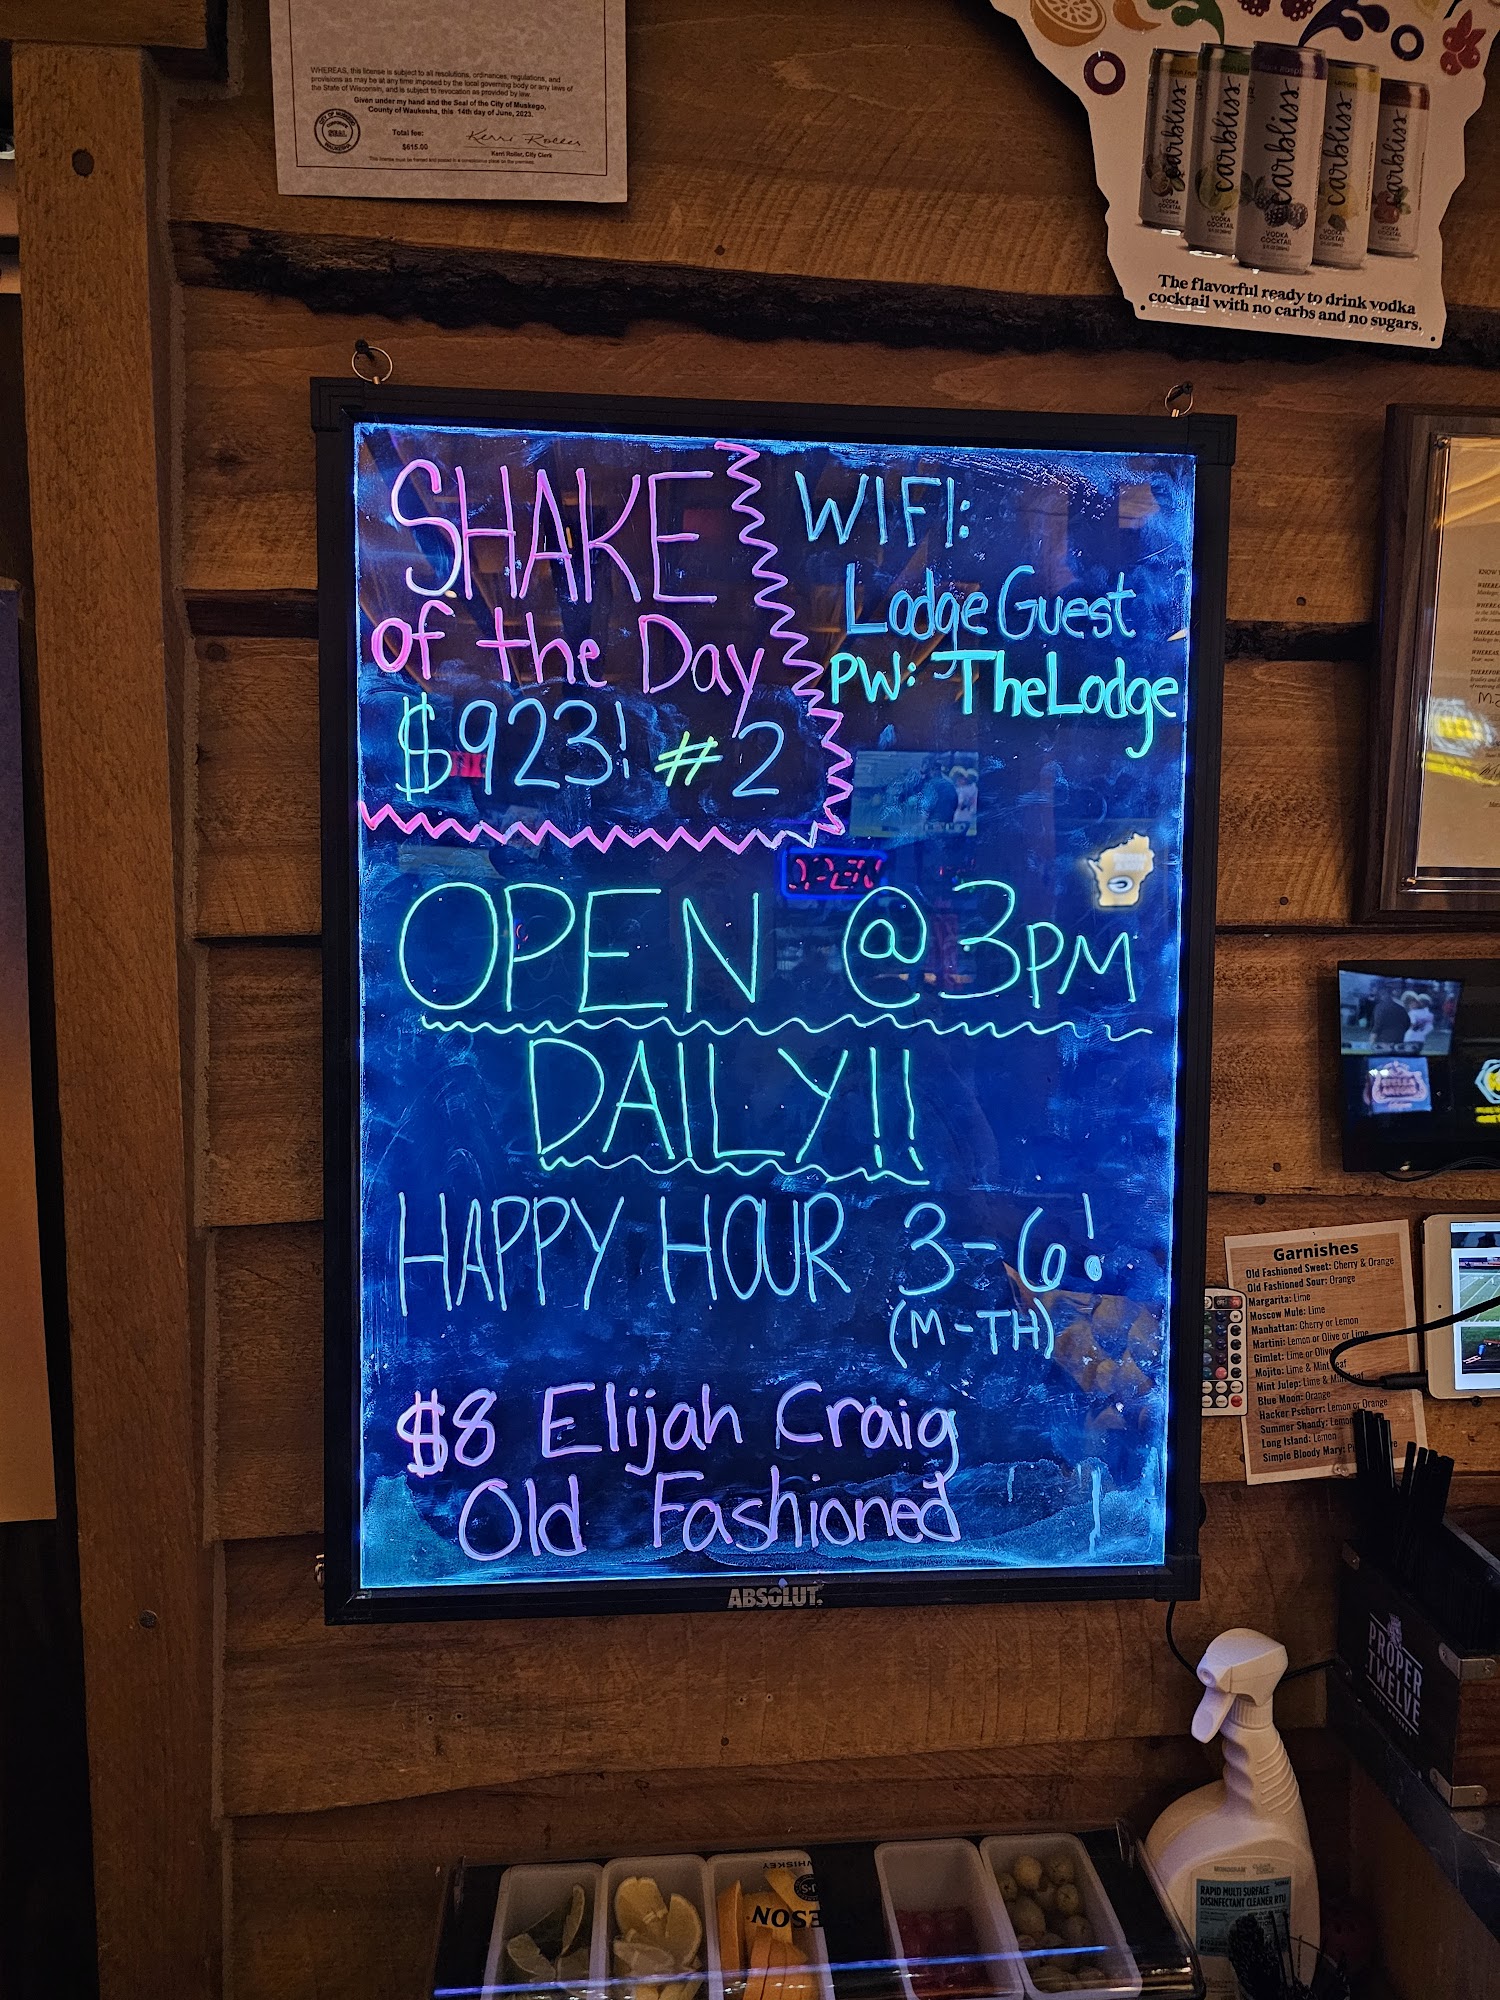 WHEREAS, this license is subject to all resolutions, ordinances, regulations, and
provisions as may be at any time imposed by the local governing body or any laws of
the State of Wisconsin, and is subject to revocation as provided by law.
Given under my hand and the Seal of the City of Muskego,
County of Waukesha, this 14th day of June, 2023.
Total fee:
$615.00
Kerri Roller
Kerri Roller, City Clerk
SEAL
carbliss
carbliss
carbliss
carbliss
carbliss
VODKA
COCKTAIL
The flavorful ready to drink vodka
cocktail with no carbs and no sugars.
SHAKE
of the Day
$923! #2
WIFI:
LodgeGuest
PW: TheLodge
OPEN
OPEN @ 3PM
DAILY!!
HAPPY HOUR 3-6!
(M-TH)
$8 Elijah Craig
Old Fashioned
ABSOLUT.
Garnishes
Old Fashioned Sweet: Cherry & Orange
Old Fashioned Sour: Orange
Margarita: Lime
Moscow Mule: Lime
Manhattan: Cherry or Lemon
Martini: Lemon or Olive or Lime
Gimlet: Lime or Olive
Mojito: Lime & Mint
Mint Julep: Lime &
Blue Moon: Orange
Hacker Pschorr: Lemon or Orange
Summer Shandy: Lemon
Long Island: Lemon
Simple Bloody Mary:
PROPER
TWELVE
WHISKEY
RAPID MULTI SURFACE
DISINFECTANT CLEANER RTU